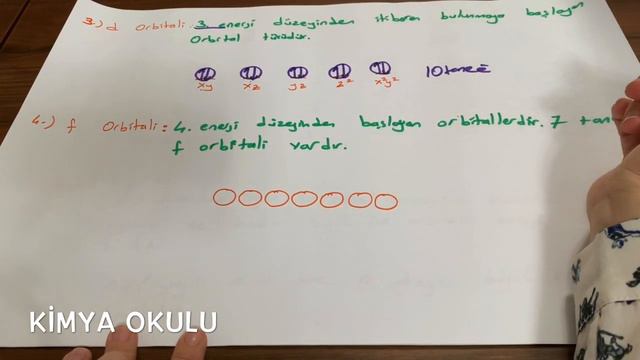 3.) d Orbitali: 3. enerji düzeyinden itibaren bulunmaya başlayan
Orbital türüdür.
xy xz yz z² x²y²
10 tane e
4.) f Orbitali: 4. enerji düzeyinden başlayan orbitallerdir. 7 tan
f orbitali vardır.
KİMYA OKULU